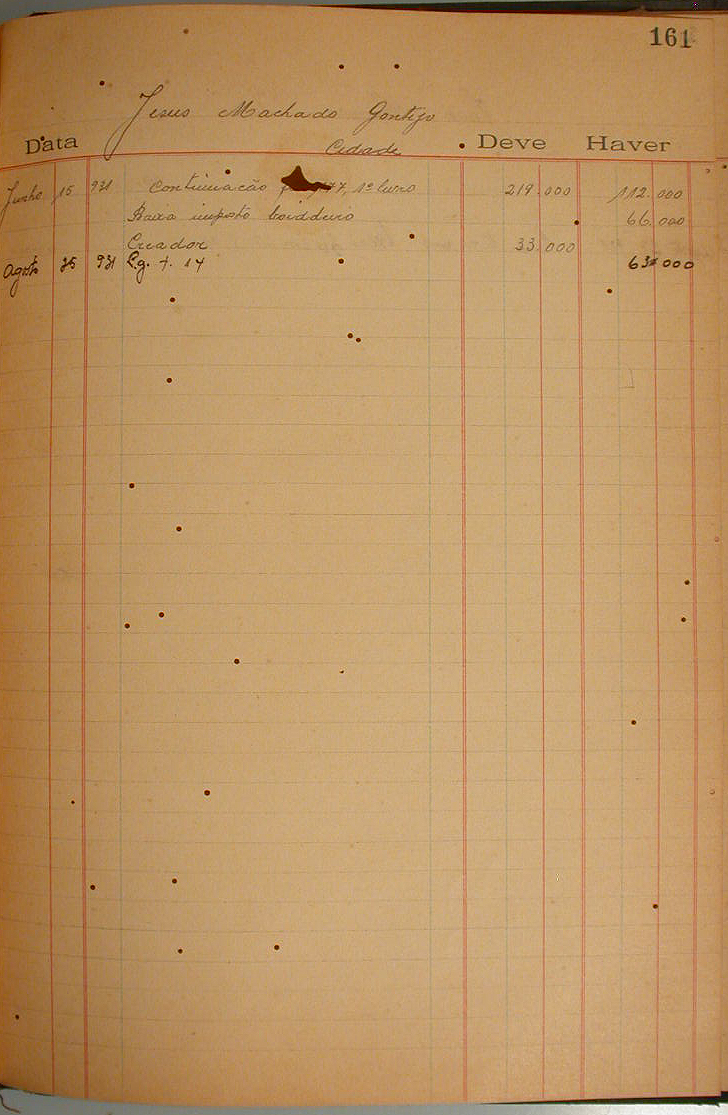 161
Jesus Machado Gontijo
Cidade
Data Deve Haver
Junho 15 931 Continuação 77, 1º livro 219.000 112.000
Baixa imposto 66.000
Creador 33.000
Agosto 931 Pg. f. 14 63.000